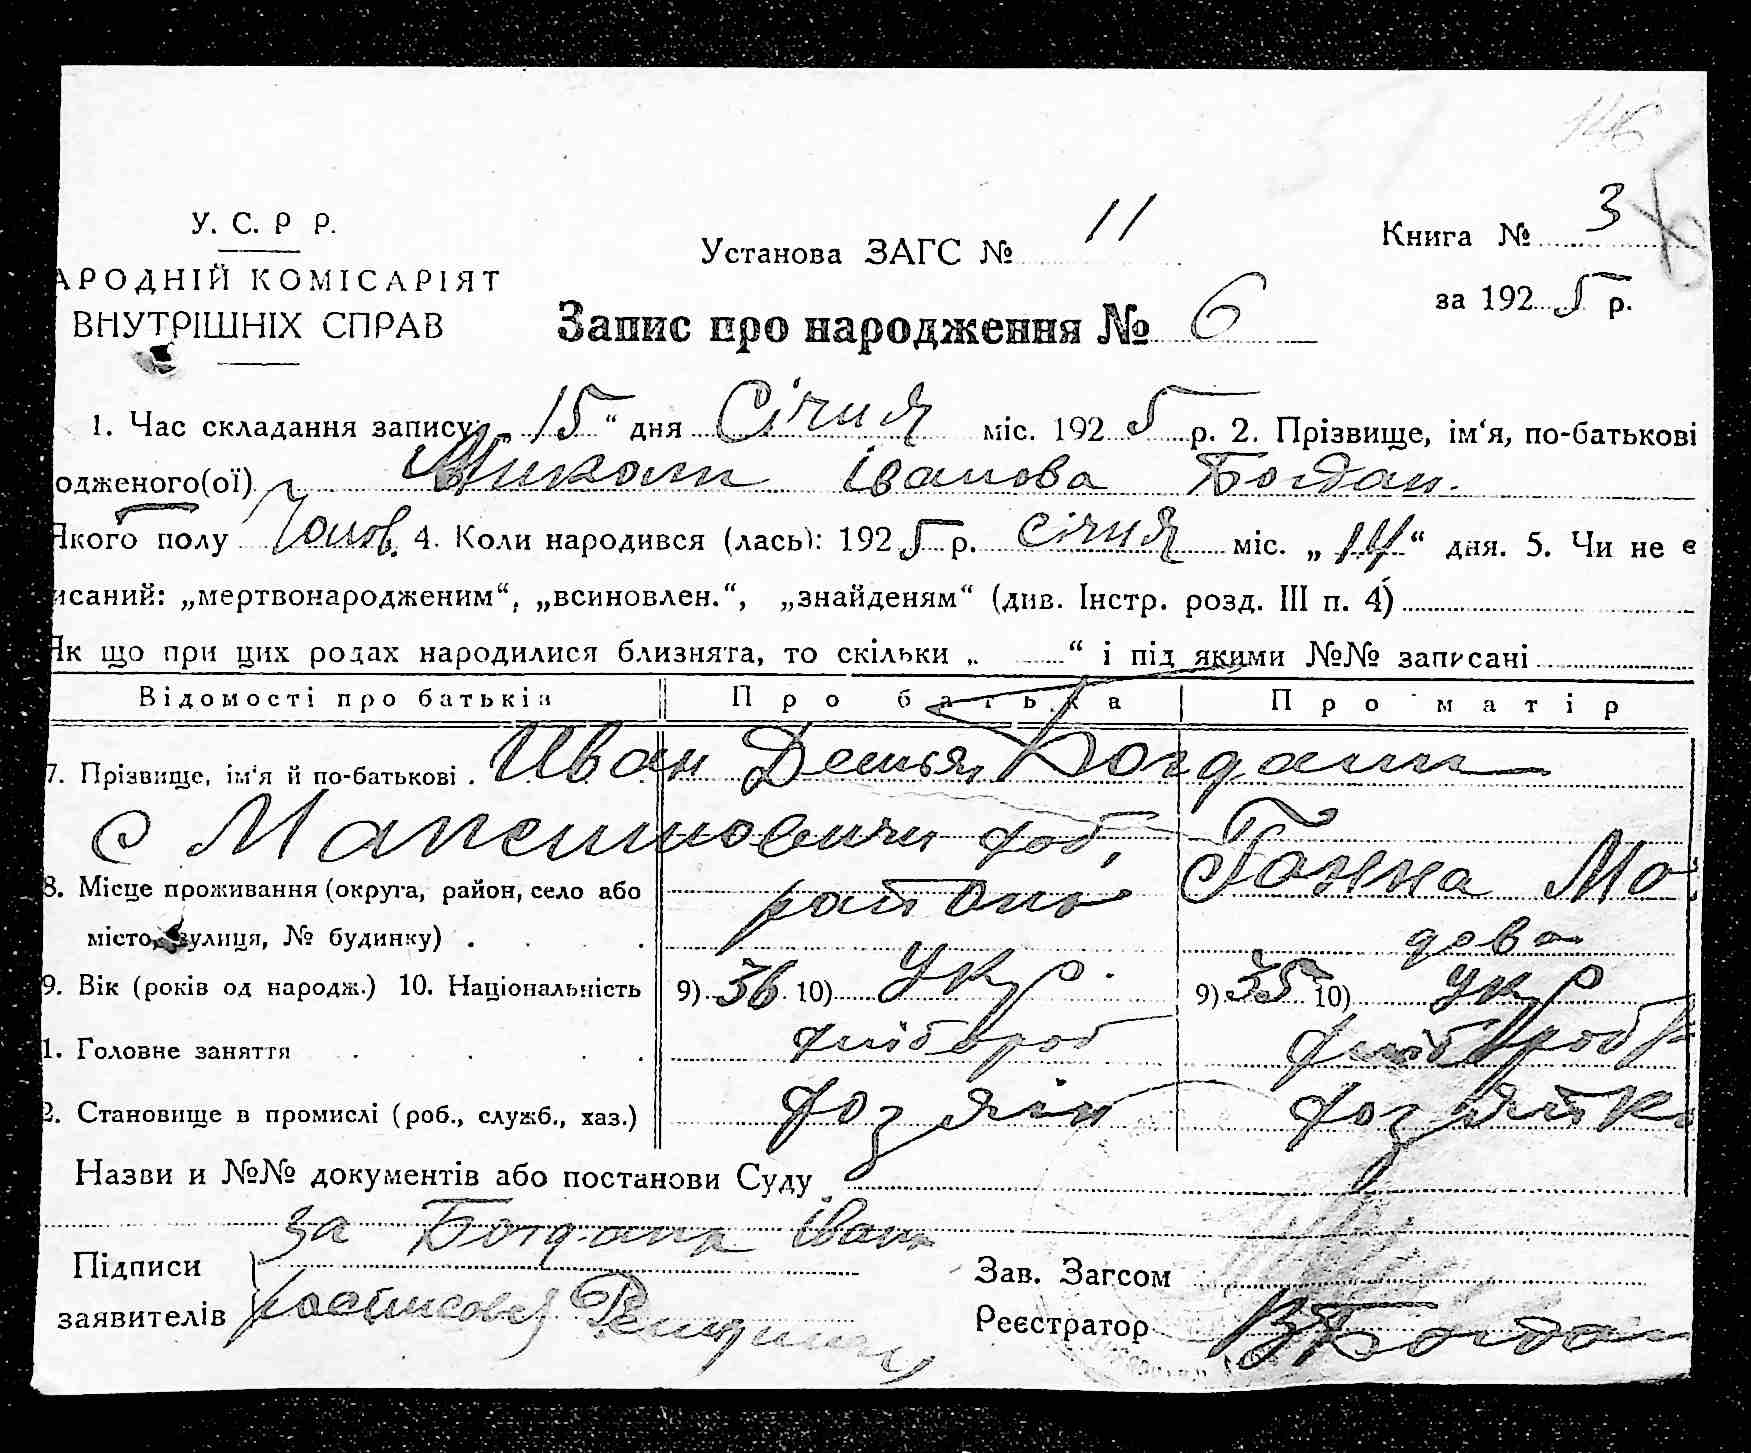 146
У. С. Р Р.
АРОДНІЙ КОМІСАРІЯТ
ВНУТРІШНІХ СПРАВ
Установа ЗАГС № 11
Книга № 3
за 1925 р.
Запис про народження № 6
1. Час складання запису „15“ дня Січня міс. 1925 р. 2. Прізвище, ім‘я, по-батькові
одженого(ої) Микола Іванова Богдан.
Якого полу Чолов. 4. Коли народився (лась): 1925 р. січня міс. „14“ дня. 5. Чи не є
исаний: „мертвонародженим“, „всиновлен.“, „знайденям“ (див. Інстр. розд. III п. 4)
Як що при цих родах народилися близнята, то скільки „ “ і під якими №№ записані
Відомості про батьків Про батька Про матір
7. Прізвище, ім‘я й по-батькові . Иван Демьян Богдан
с Максимовичи хоб,
8. Місце проживання (округа, район, село або району Ганна Мо
місто, вулиця, № будинку) . . . . дова
9. Вік (років од народж.) 10. Національність 9) 36 10) Укр. 9) 35 10) Укр
1. Головне заняття . . . . . хлібороб хлібороб
2. Становище в промислі (роб., служб., хаз.) хозяін хозяйка
Назви и №№ документів або постанови Суду
за Богдана Івана
Підписи
заявителів
Зав. Загсом
Реєстратор Богдан